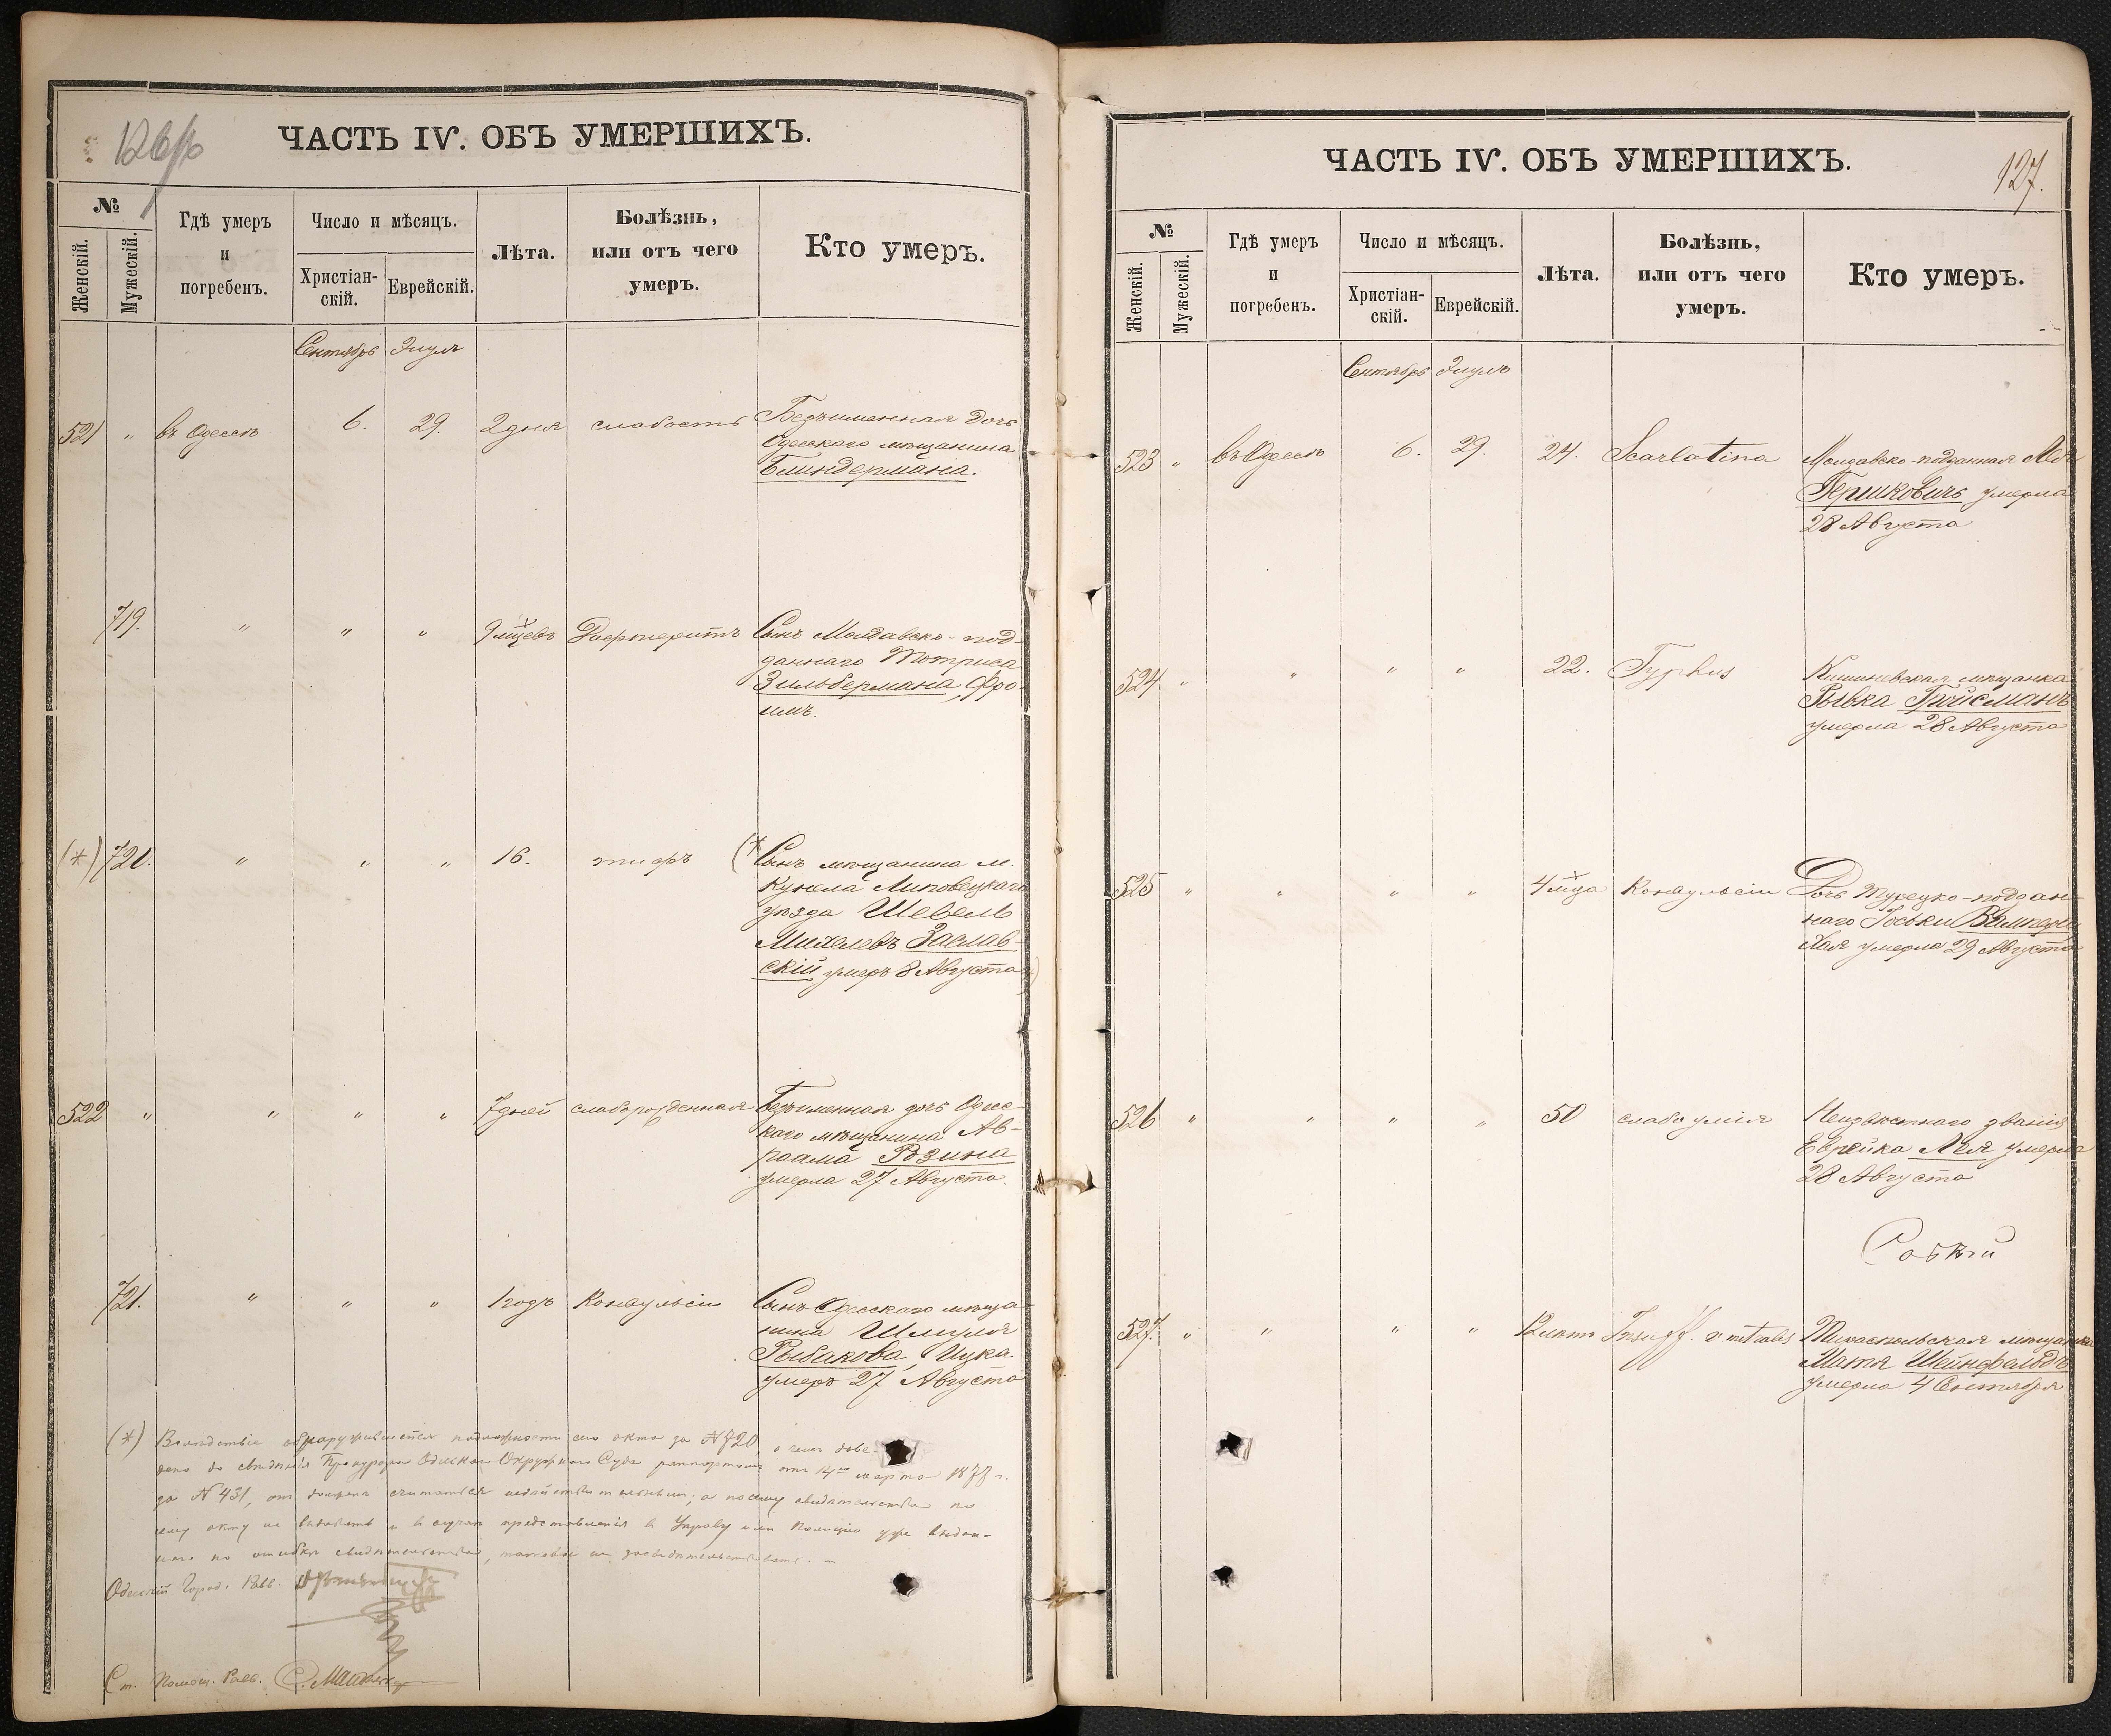 ЧАСТЬ IV. ОБЪ УМЕРШИХЪ.
№
Женскій.
Мужескій.
Гдѣ умеръ
и
погребенъ.
Число и мѣсяцъ.
Христіан-
скій.
Еврейскій.
Лѣта.
Болѣзнь,
или отъ чего
умеръ.
Кто умеръ.
Сентябрь Элулъ
521 " въ Одессѣ 6. 29. 2 дня слабость Безъименная дочь
Одесскаго мѣщанина
Блиндермана.
719. " " " 9 мцевъ Дифтеритъ Сынъ Молдавско-под-
даннаго
Зильбермана, Фро-
имъ.
(*) 720. " " " 16. тифъ (* Сынъ мѣщанина м.
Кунела Липовецкаго
уѣзда Шевель
Михелевъ Заслав-
скій умеръ 8 Августа)
522 " " " " 7 дней слаборожденная Безъименная дочь Одес-
каго мѣщанина Ав-
раама Розина
умерла 27 Августа.
721. " " " 1 годъ Конвульсіи Сынъ Одесскаго мѣща-
нина Шмуля
Рыбакова, Ицка
умеръ 27 Августа
(*) Вслѣдствіе обнаружившейся подложности сего акта за №720, о чемъ дове-
дено до свѣдѣнія Прокурора Одесскаго Окружнаго Суда рапортомъ отъ 14го марта 1877 г.
за №431, онъ долженъ считаться недѣйствительнымъ; а посему свидѣтельства по
сему акту не выдавать и въ случаѣ представленія въ Управу или Полицію уже выдан-
наго по ошибкѣ свидѣтельства, таковое не засвидѣтельствовать.
Одесскій Город. Равв.
Ст. Помощ. Равв.
127.
ЧАСТЬ IV. ОБЪ УМЕРШИХЪ.
№
Женскій.
Мужескій.
Гдѣ умеръ
и
погребенъ.
Число и мѣсяцъ.
Христіан-
скій.
Еврейскій.
Лѣта.
Болѣзнь,
или отъ чего
умеръ.
Кто умеръ.
Сентябрь Элулъ
523 " въ Одессѣ 6. 29. 24. Scarlatina Молдавско-подданная
Гершковичъ умерла
28 Августа
524 " " " " 22. Typhus Кишиневская мѣщанка
Рывка
умерла 28 Августа
525 " " " " 4 мца Конвульсіи Дочь Турецко-поддан-
наго
Хая умерла 29 Августа
526 " " " " 50 слабоумія Неизвѣстнаго званія
Еврейка Лея умерла
28 Августа
527. " " " " 12 лѣтъ Insuff. v. mitralis Тираспольская мѣщанка
Матя Шейнфельдъ
умерла 4 Сентября